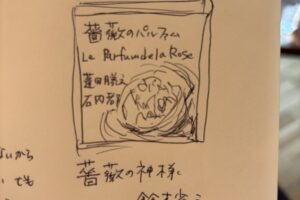 薔薇のパルファム
Le Parfum de la Rose
蓬田勝之
石内都
ないから
薔薇の神様に